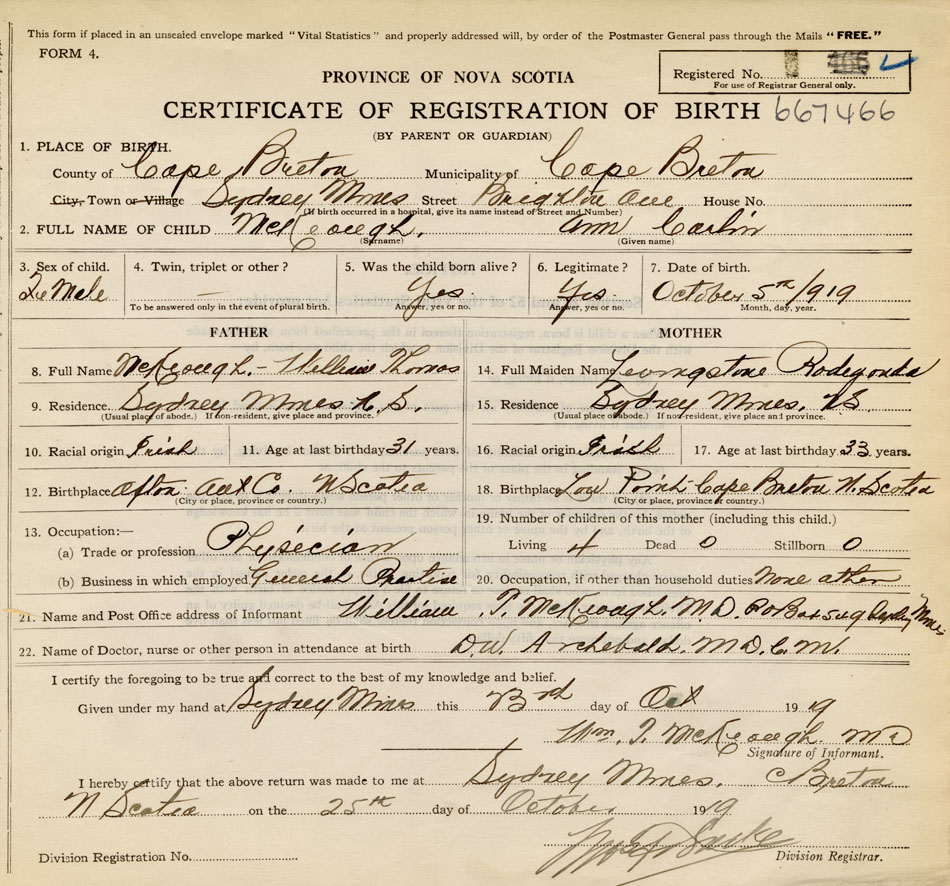 This form if placed in an unsealed envelope marked "Vital Statistics" and properly addressed will, by order of the Postmaster General pass through the Mails "FREE."
FORM 4.
Registered No. 466
For use of Registrar General only.
PROVINCE OF NOVA SCOTIA
CERTIFICATE OF REGISTRATION OF BIRTH 667466
(BY PARENT OR GUARDIAN)
1. PLACE OF BIRTH.
County of Cape Breton Municipality of Cape Breton
City, Town or Village Sydney Mines Street Brighton Ave House No.
(If birth occurred in a hospital, give its name instead of Street and Number)
2. FULL NAME OF CHILD McKeough. Ann Carlin
(Surname) (Given name)
3. Sex of child. 4. Twin, triplet or other? 5. Was the child born alive? 6. Legitimate? 7. Date of birth.
Female — Yes. Yes October 5th 1919
To be answered only in the event of plural birth. Answer, yes or no. Answer, yes or no. Month, day, year.
FATHER MOTHER
8. Full Name McKeough. - William Thomas 14. Full Maiden Name Levingstone Rodegonda
9. Residence. Sydney Mines N. S. 15. Residence Sydney Mines, NS
(Usual place of abode.) If non-resident, give place and province. (Usual place of abode.) If non-resident, give place and province.
10. Racial origin Irish 11. Age at last birthday 31 years. 16. Racial origin Irish 17. Age at last birthday 33 years.
12. Birthplace Afton Ant Co. N Scotia 18. Birthplace Low Point Cape Breton N. Scotia
(City or place, province or country.) (City or place, province or country.)
13. Occupation:— 19. Number of children of this mother (including this child.)
(a) Trade or profession Physician Living 4 Dead 0 Stillborn 0
(b) Business in which employed General Practise 20. Occupation, if other than household duties None other
21. Name and Post Office address of Informant William T. McKeough. M.D. PO Box Sydney Mines
22. Name of Doctor, nurse or other person in attendance at birth D.W. Archebald. M D. C. M.
I certify the foregoing to be true and correct to the best of my knowledge and belief.
Given under my hand at Sydney Mines this day of Oct 1919
Wm. T. McKeough. MD
Signature of Informant.
I hereby certify that the above return was made to me at Sydney Mines. C Breton
N Scotia on the 25th day of October 1919
Division Registration No. Division Registrar.